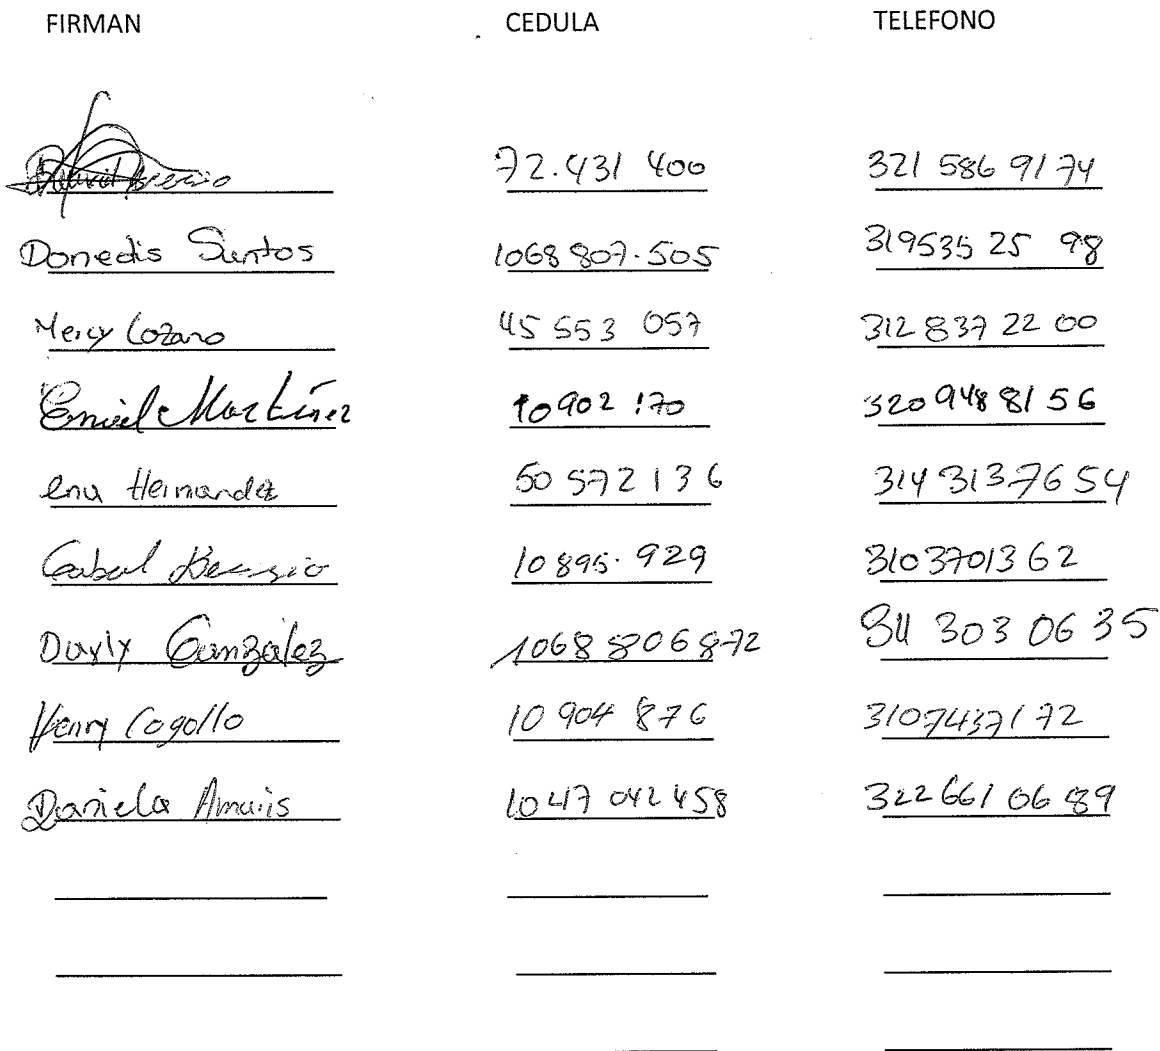 FIRMAN CEDULA TELEFONO
72.431 400 321 586 9174
Donedis Santos 1068 807.505 319535 25 98
Mercy Lozano 45 553 057 312 837 22 00
Emiel Martinez 10902 170 320 948 8156
ena Hernandez 50 572 136 314 3137654
10895.929 3103701362
Darly Gonzalez 1068806872 311 303 06 35
Henry Cogollo 10 904 876 3107437172
Daniela Amaris 1047 042 458 322 661 06 89